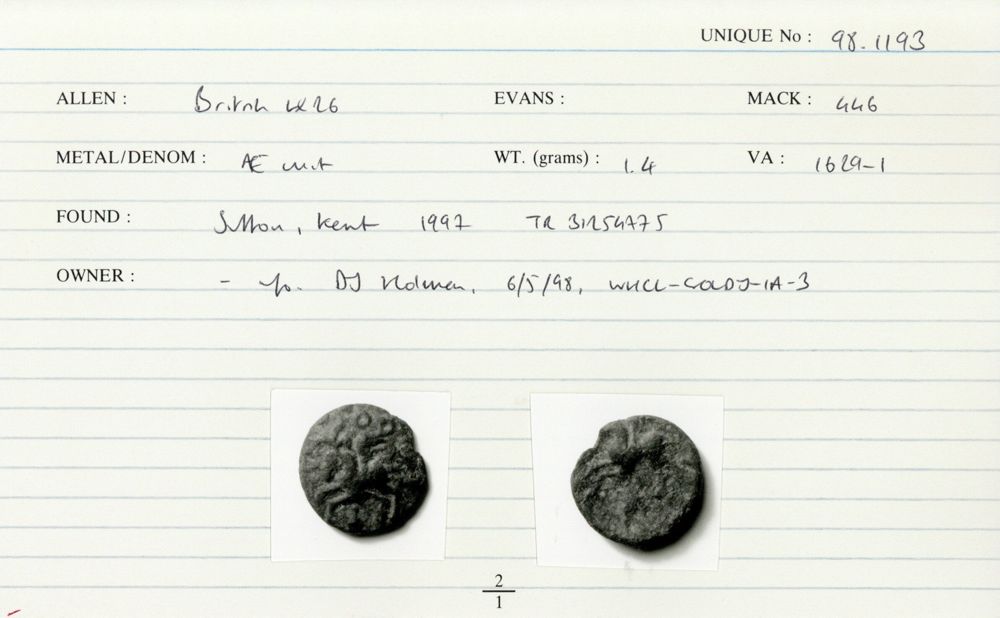 UNIQUE No : 98.1193
ALLEN : British LX26 EVANS : MACK : 446
METAL/DENOM : Æ unit WT. (grams) : 1.4 VA : 1629-1
FOUND : Sutton, Kent 1997 TR 31254775
OWNER : - DJ Holman, 6/5/98, WHCL-COLDJ-1A-3
2
1